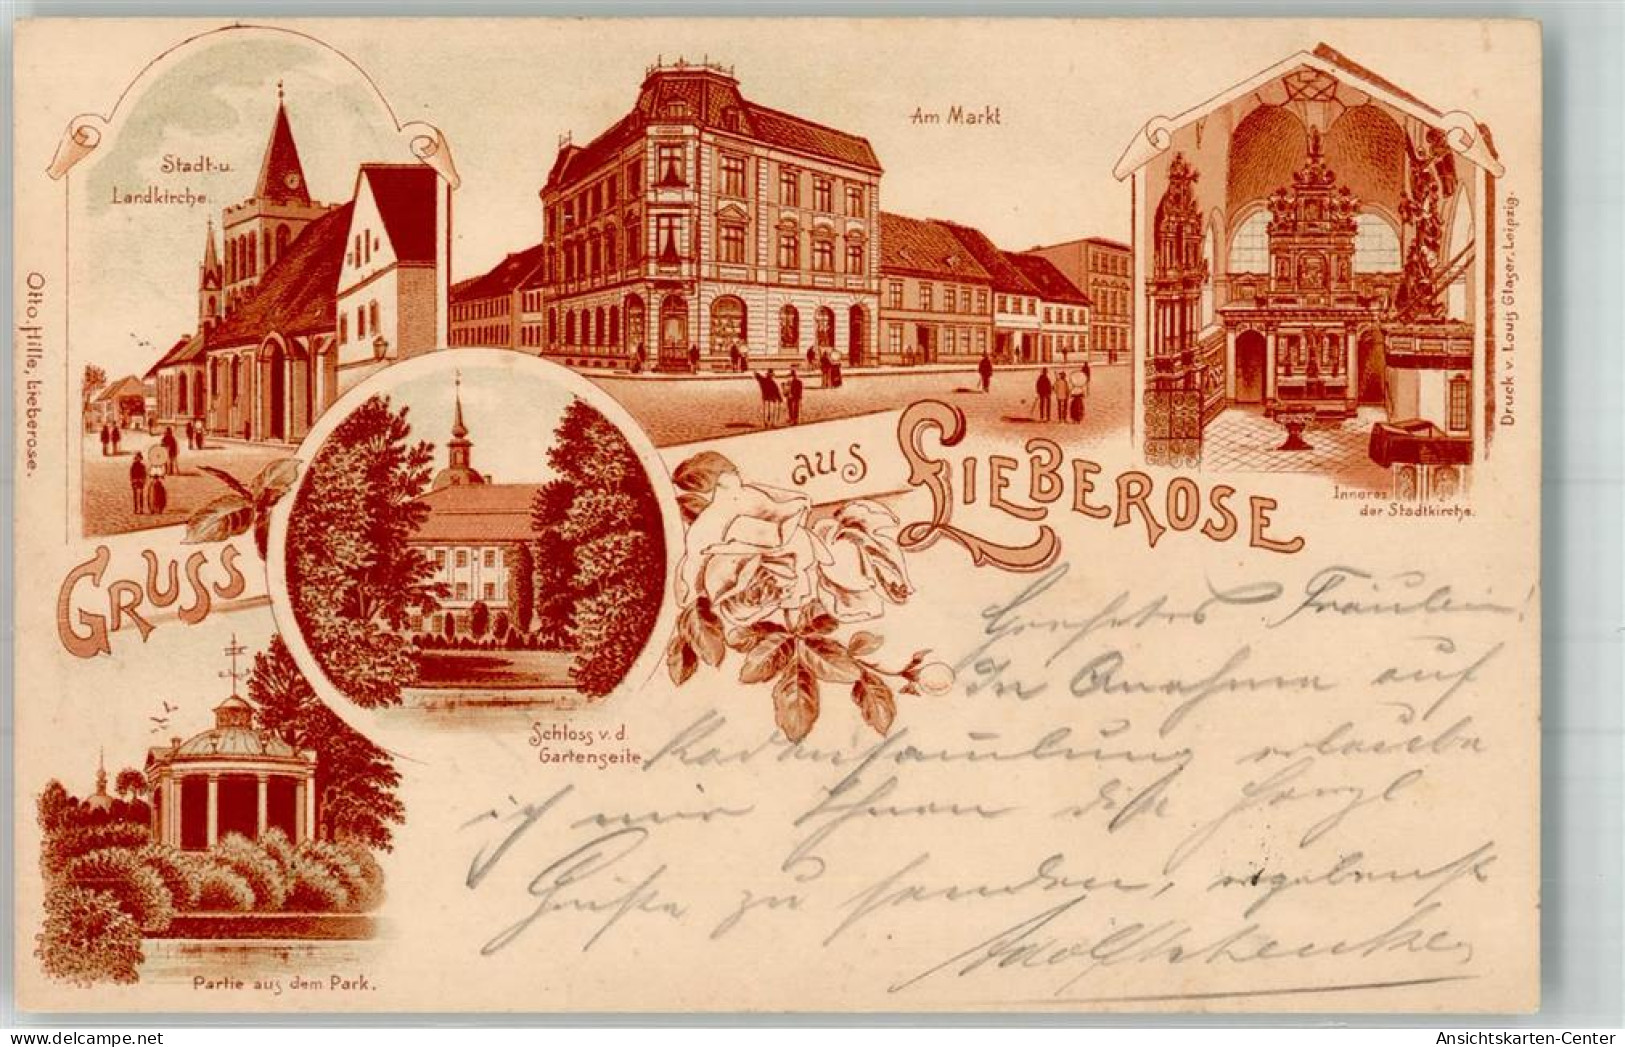 Stadt-u.
Landkirche.
Am Markt
Otto Hille, Lieberose.
Druck v. Louis Glaser, Leipzig.
Inneres
der Stadtkirche.
GRUSS aus LIEBEROSE
Schloss v. d.
Gartenseite.
Partie aus dem Park.
Geehrtes Fräulein!
In Anahme auf
Kartensammlung erlaube
ich mir Ihnen diese
Grüße zu senden, ergebenst
Ansichtskarten-Center